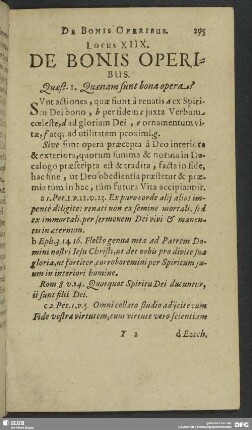 DE BONIS OPERIBUS. 295
LOCUS XIIX.
DE BONIS OPERI-
BUS.
Quæst. 1. Quænam sunt bona opera?
SUnt actiones, quæ fiunt à renatis a ex Spiri-
tu Dei bono, b per fidem c juxta Verbum
cœleste, d ad gloriam Dei, e ornamentum vi-
tæ, f atq; ad utilitatem proximi. g.
Sive sunt opera præcepta à Deo interiora
& exteriora, quorum summa & norma in De-
calogo præscripta est & tradita, facta in fide,
hac fine, ut Deo obedientia præstetur & præ-
mia tum in hac, tum futura Vita accipiantur.
a 1. Pet. 1. v. 22. v. 23. Ex puro corde alij alios
impensè diligite: renati non ex semine mortali, sed
ex immortali, per sermonem Dei vivi & manen-
tis in æternum.
b Eph. 3. 14. 16. Flecto genua mea ad Patrem Do-
mini nostri Jesu Christi, ut det vobis pro divite sua
gloria, ut fortiter corroboremini per Spiritum su-
um in interiori homine.
Rom 8 v. 14. Quotquot Spiritu Dei ducuntur,
ii sunt filii Dei.
c 2 Pet. 1. v. 5 Omni collato studio adjicite cum
Fide vestra virtutem, cum virtute vero scientiam
T 2 d Ezech.
SLUB